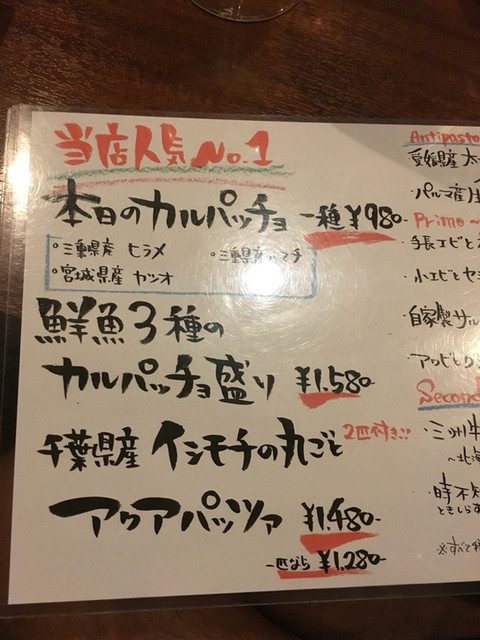 当店人気No.1
本日のカルパッチョ 一種¥980-
・三重県産 ヒラメ ・三重県産 マチ
・宮城県産 カツオ
鮮魚3種の
カルパッチョ盛り ¥1,580-
千葉県産 イシモチの丸ごと 2匹付き!!
アクアパッツァ ¥1,480-
一匹なら ¥1,280-
Antipasto
愛媛県産
・パルマ産生
Primo ~
・手長エビと
・小エビとセ
・自家製サル
Second
・三州牛
~北海
・時不知
ときしらず